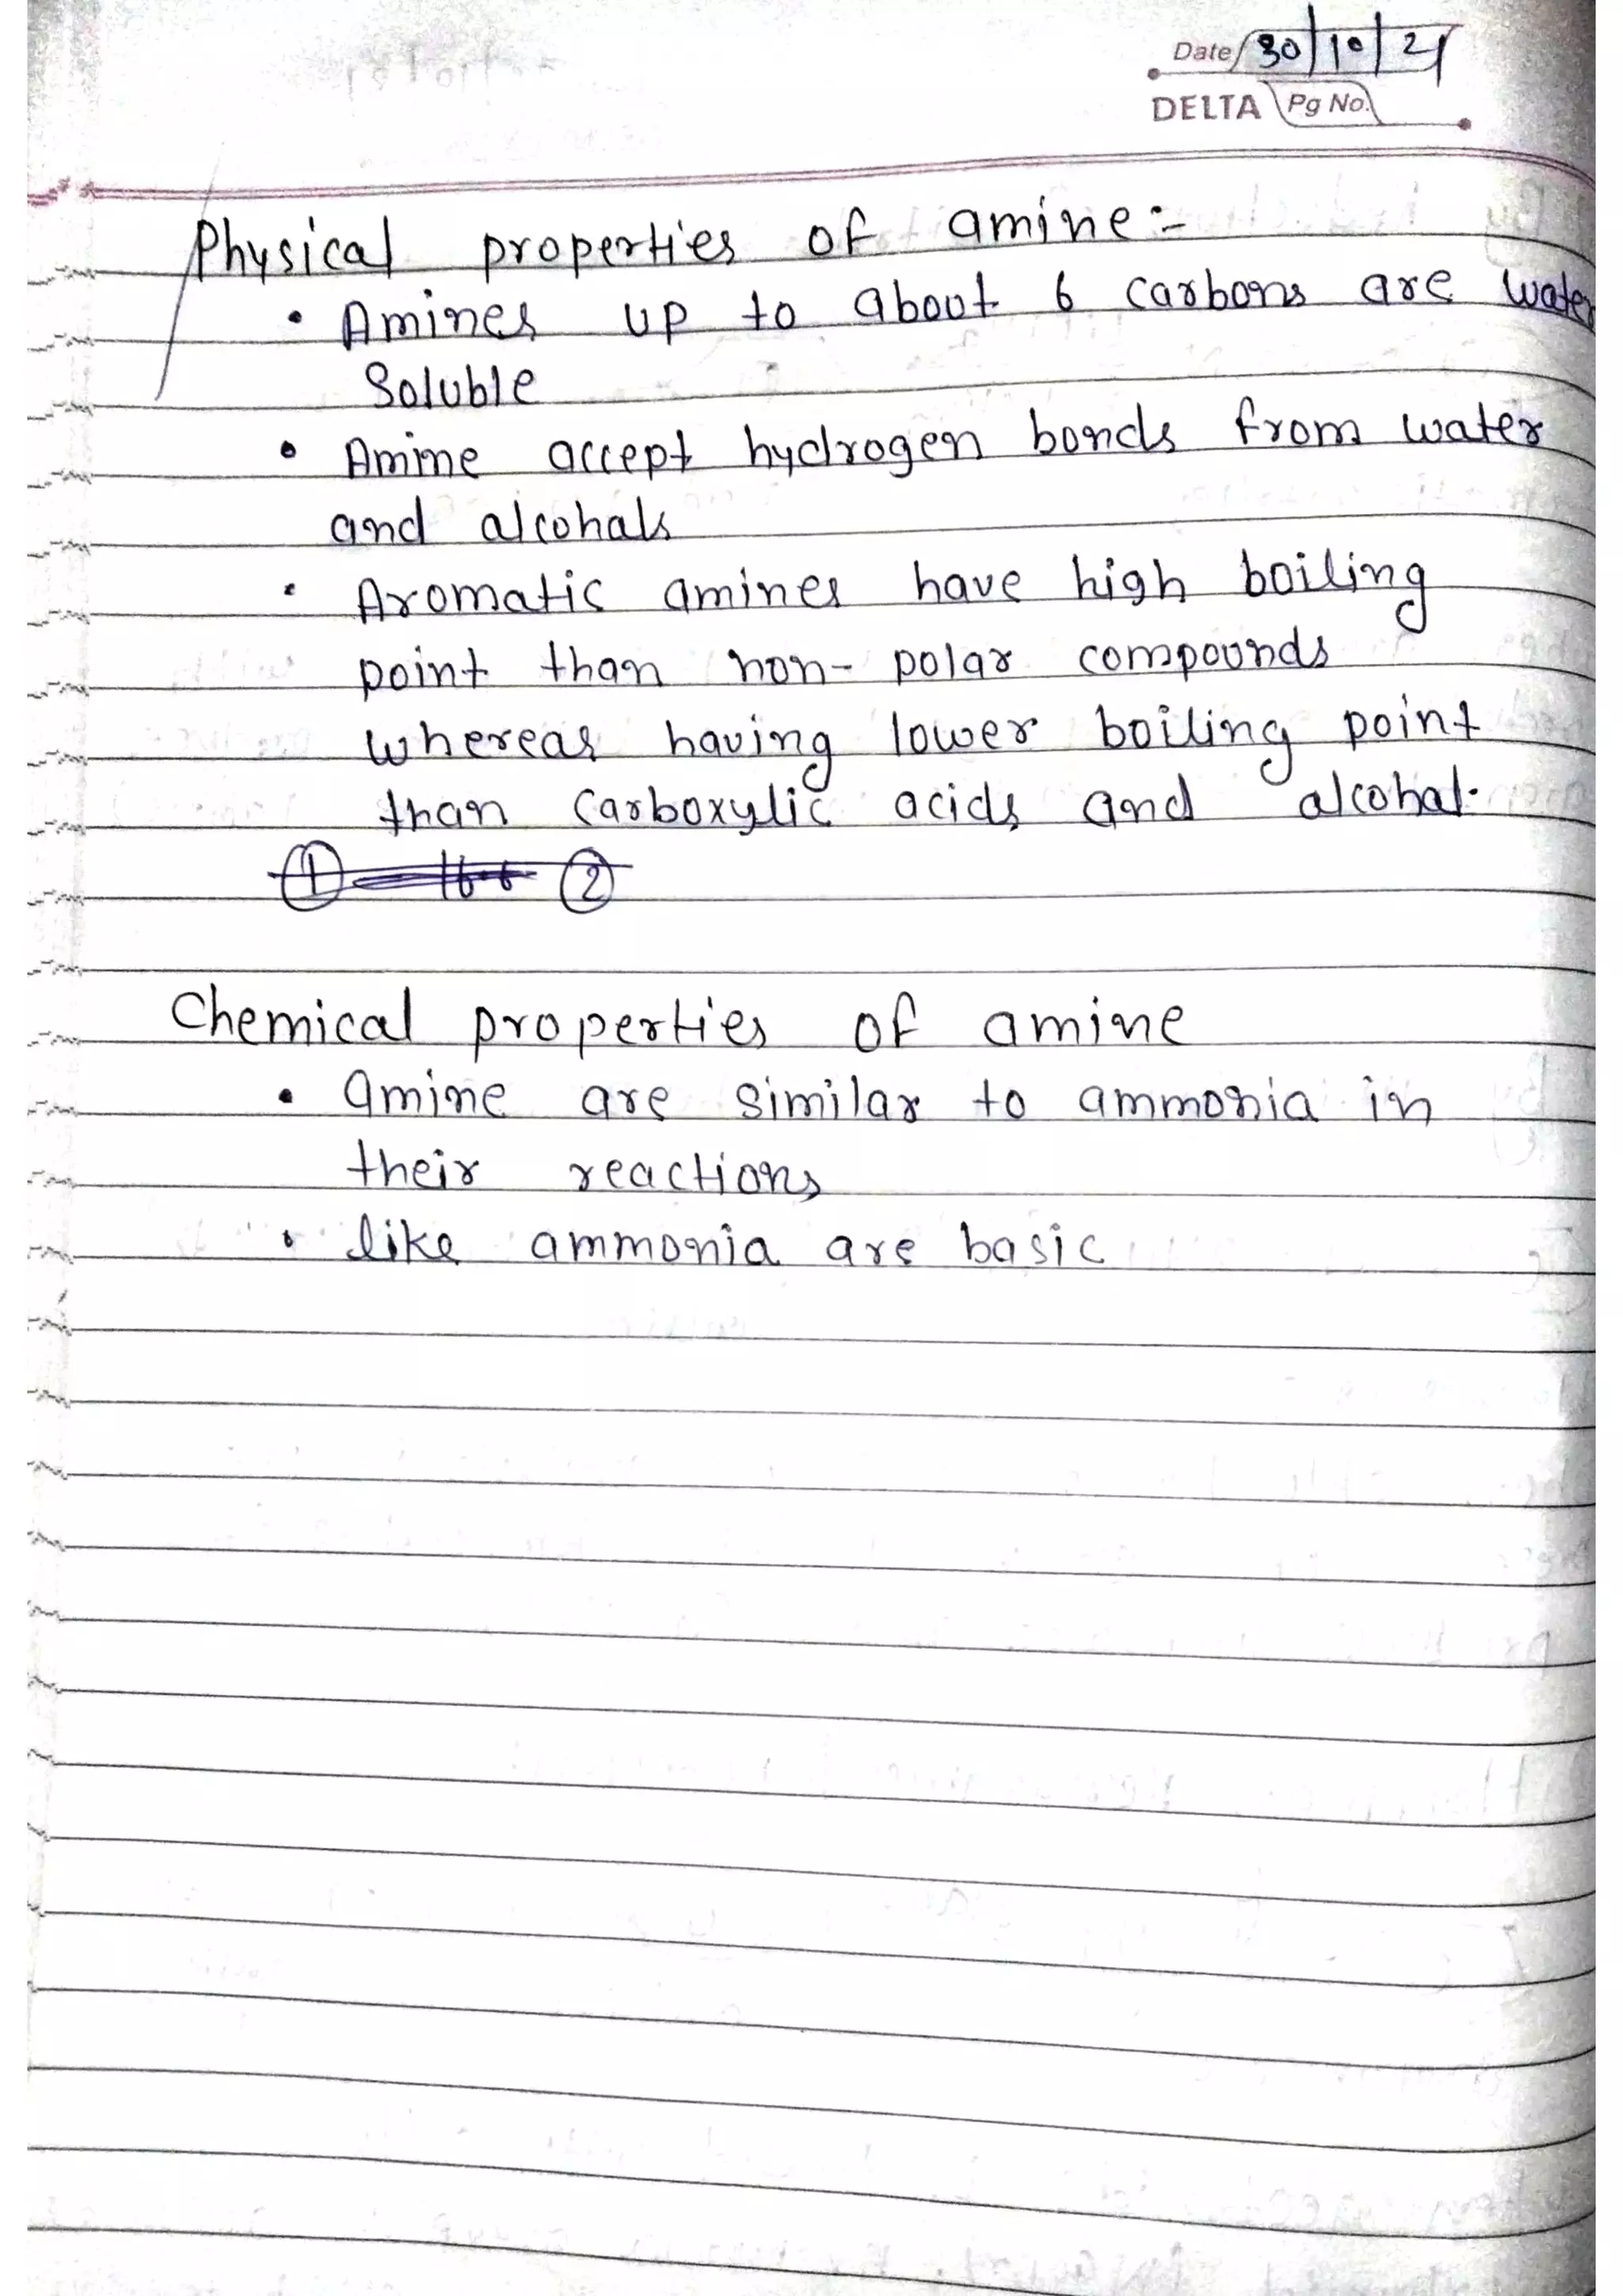 Date 30/10/21
DELTA Pg No.
Physical properties of amine :-
• Amines up to about 6 carbons are water
Soluble
• Amine accept hydrogen bonds from water
and alcohals
• Aromatic amines have high boiling
point than non-polar compounds
whereas having lower boiling point
than carboxylic acids and alcohal.
① ②
Chemical properties of amine
• amine are similar to ammonia in
their reactions
• like ammonia are basic